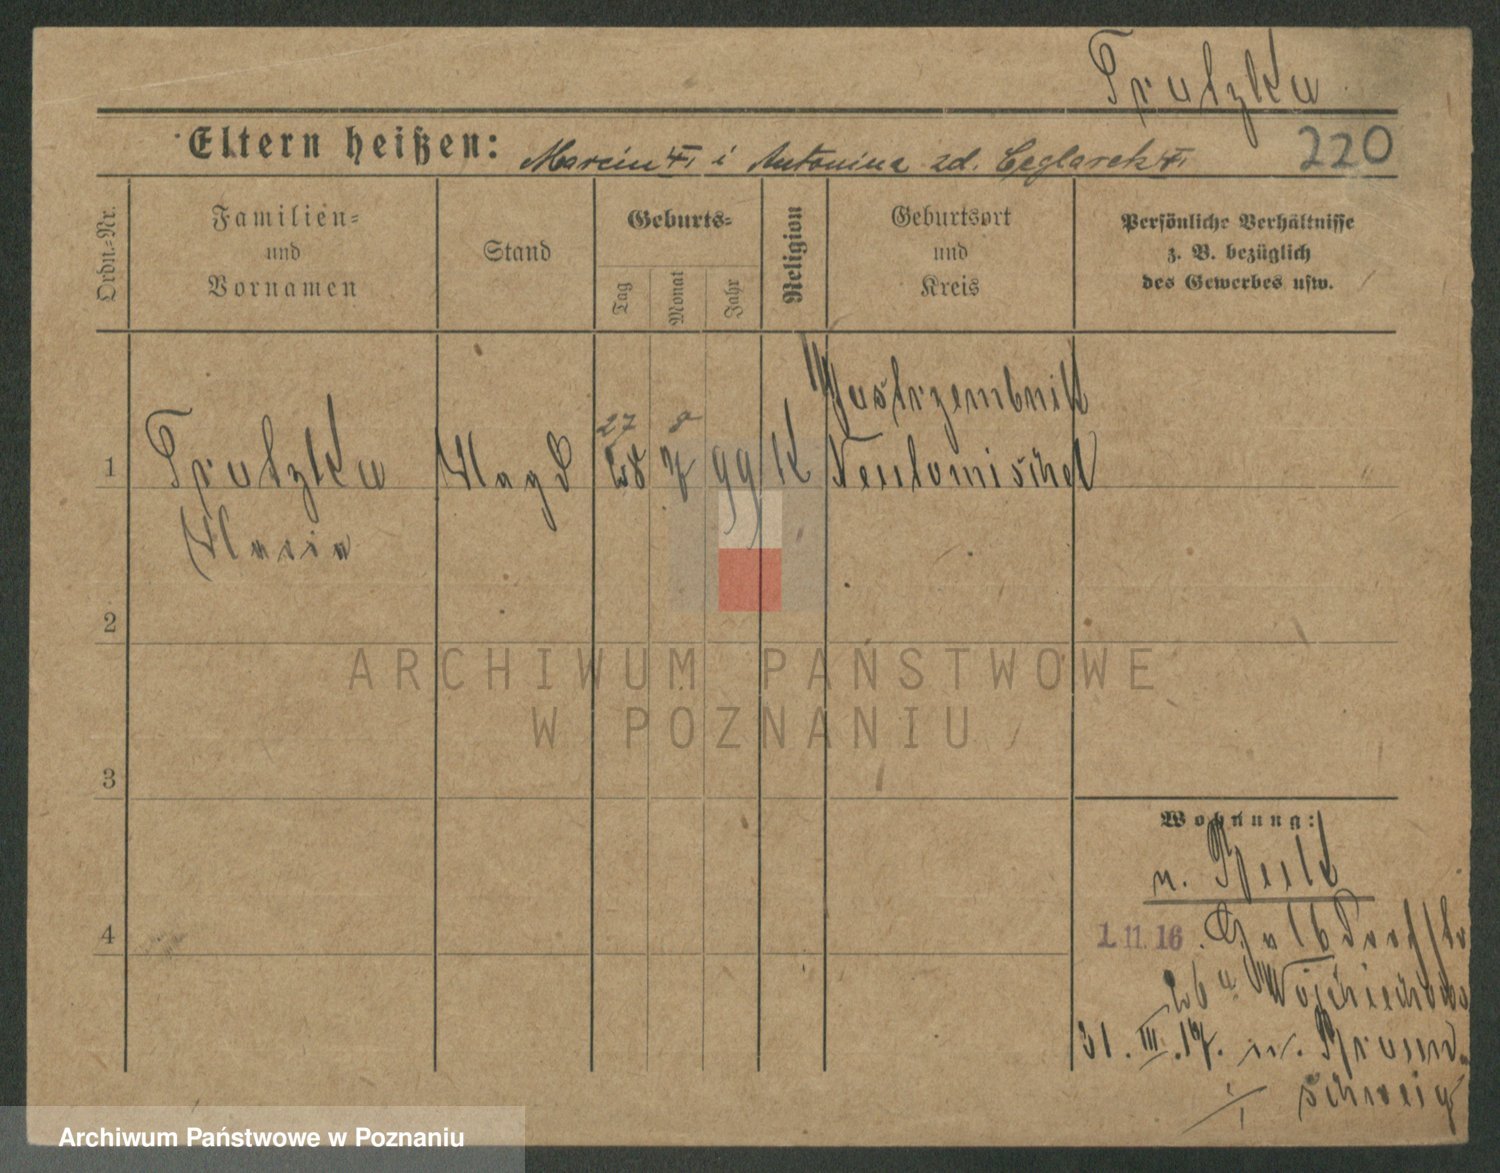 Trutzka
Eltern heißen: Marcin i Antonina zd. Ceglarek
220
Ordn.-Nr.
Familien-
und
Vornamen
Stand
Geburts-
Tag
Monat
Jahr
Religion
Geburtsort
und
Kreis
Persönliche Verhältnisse
z. B. bezüglich
des Gewerbes usw.
27 8
Jastrzembnik
1 Trutzka Magd 28 7 99 K Neutomischel
Maria
2
3
4
Wohnung:
n.
1.11.16
31.III.17. n. Braun-
schweig
ARCHIWUM PAŃSTWOWE
W POZNANIU
Archiwum Państwowe w Poznaniu